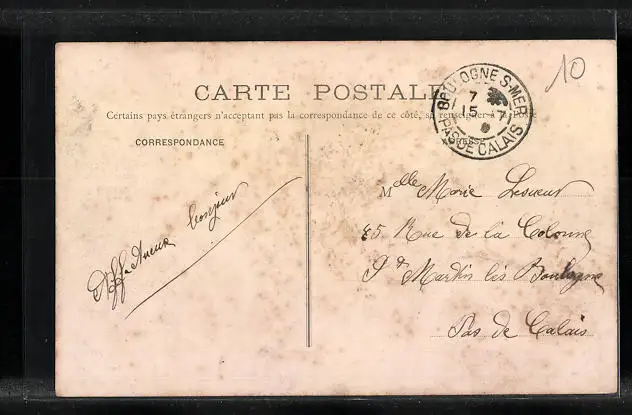 10
CARTE POSTALE
Certains pays étrangers n'acceptent pas la correspondance de ce côté, se renseigner à la Poste
BOULOGNE S-MER
7
15 7
PAS DE CALAIS
CORRESPONDANCE
Affectueux bonjour
Melle Marie Lesueur
85 Rue de la Colonne
St Martin lès Boulogne
Pas de Calais